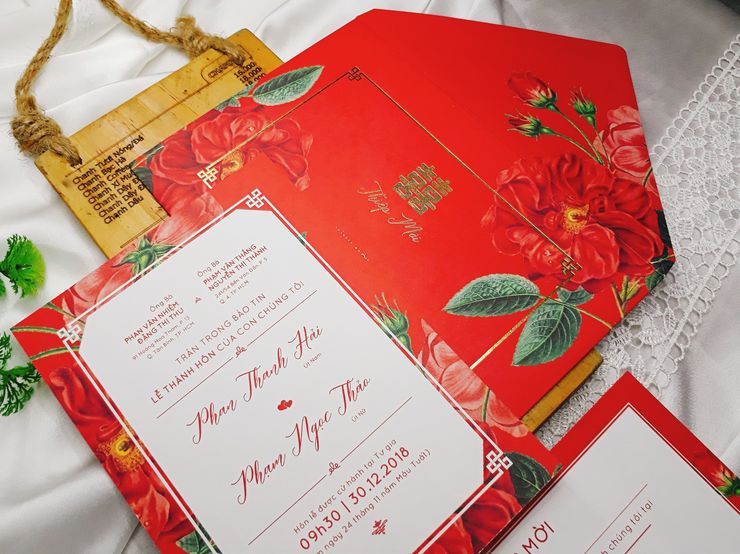 16.000
18.000
Chanh Tươi Nóng/Đá
Chanh Bạc Hà
Chanh Coffee
Chanh Xí Mu
Chanh Dây
Chanh Dây
Chanh Dâu
囍
Thiệp Mời
Ông Bà
PHAN VĂN NHIỆM
ĐẶNG THỊ THU
91 Hoàng Hoa Thám, P. 13
Q. Tân Bình, TP. HCM
Ông Bà
PHẠM VĂN THẮNG
NGUYỄN THỊ THÀNH
241/54 Bến Vân Đồn P. 5
Q. 4, TP. HCM
TRÂN TRỌNG BÁO TIN
LỄ THÀNH HÔN CỦA CON CHÚNG TÔI
Phan Thanh Hải
Út Nam
Phạm Ngọc Thảo
Út Nữ
Hôn lễ được cử hành tại Tư gia
09h30 | 30.12.2018
ngày 24 tháng 11 năm Mậu Tuất)
MỜI
chúng tôi tại